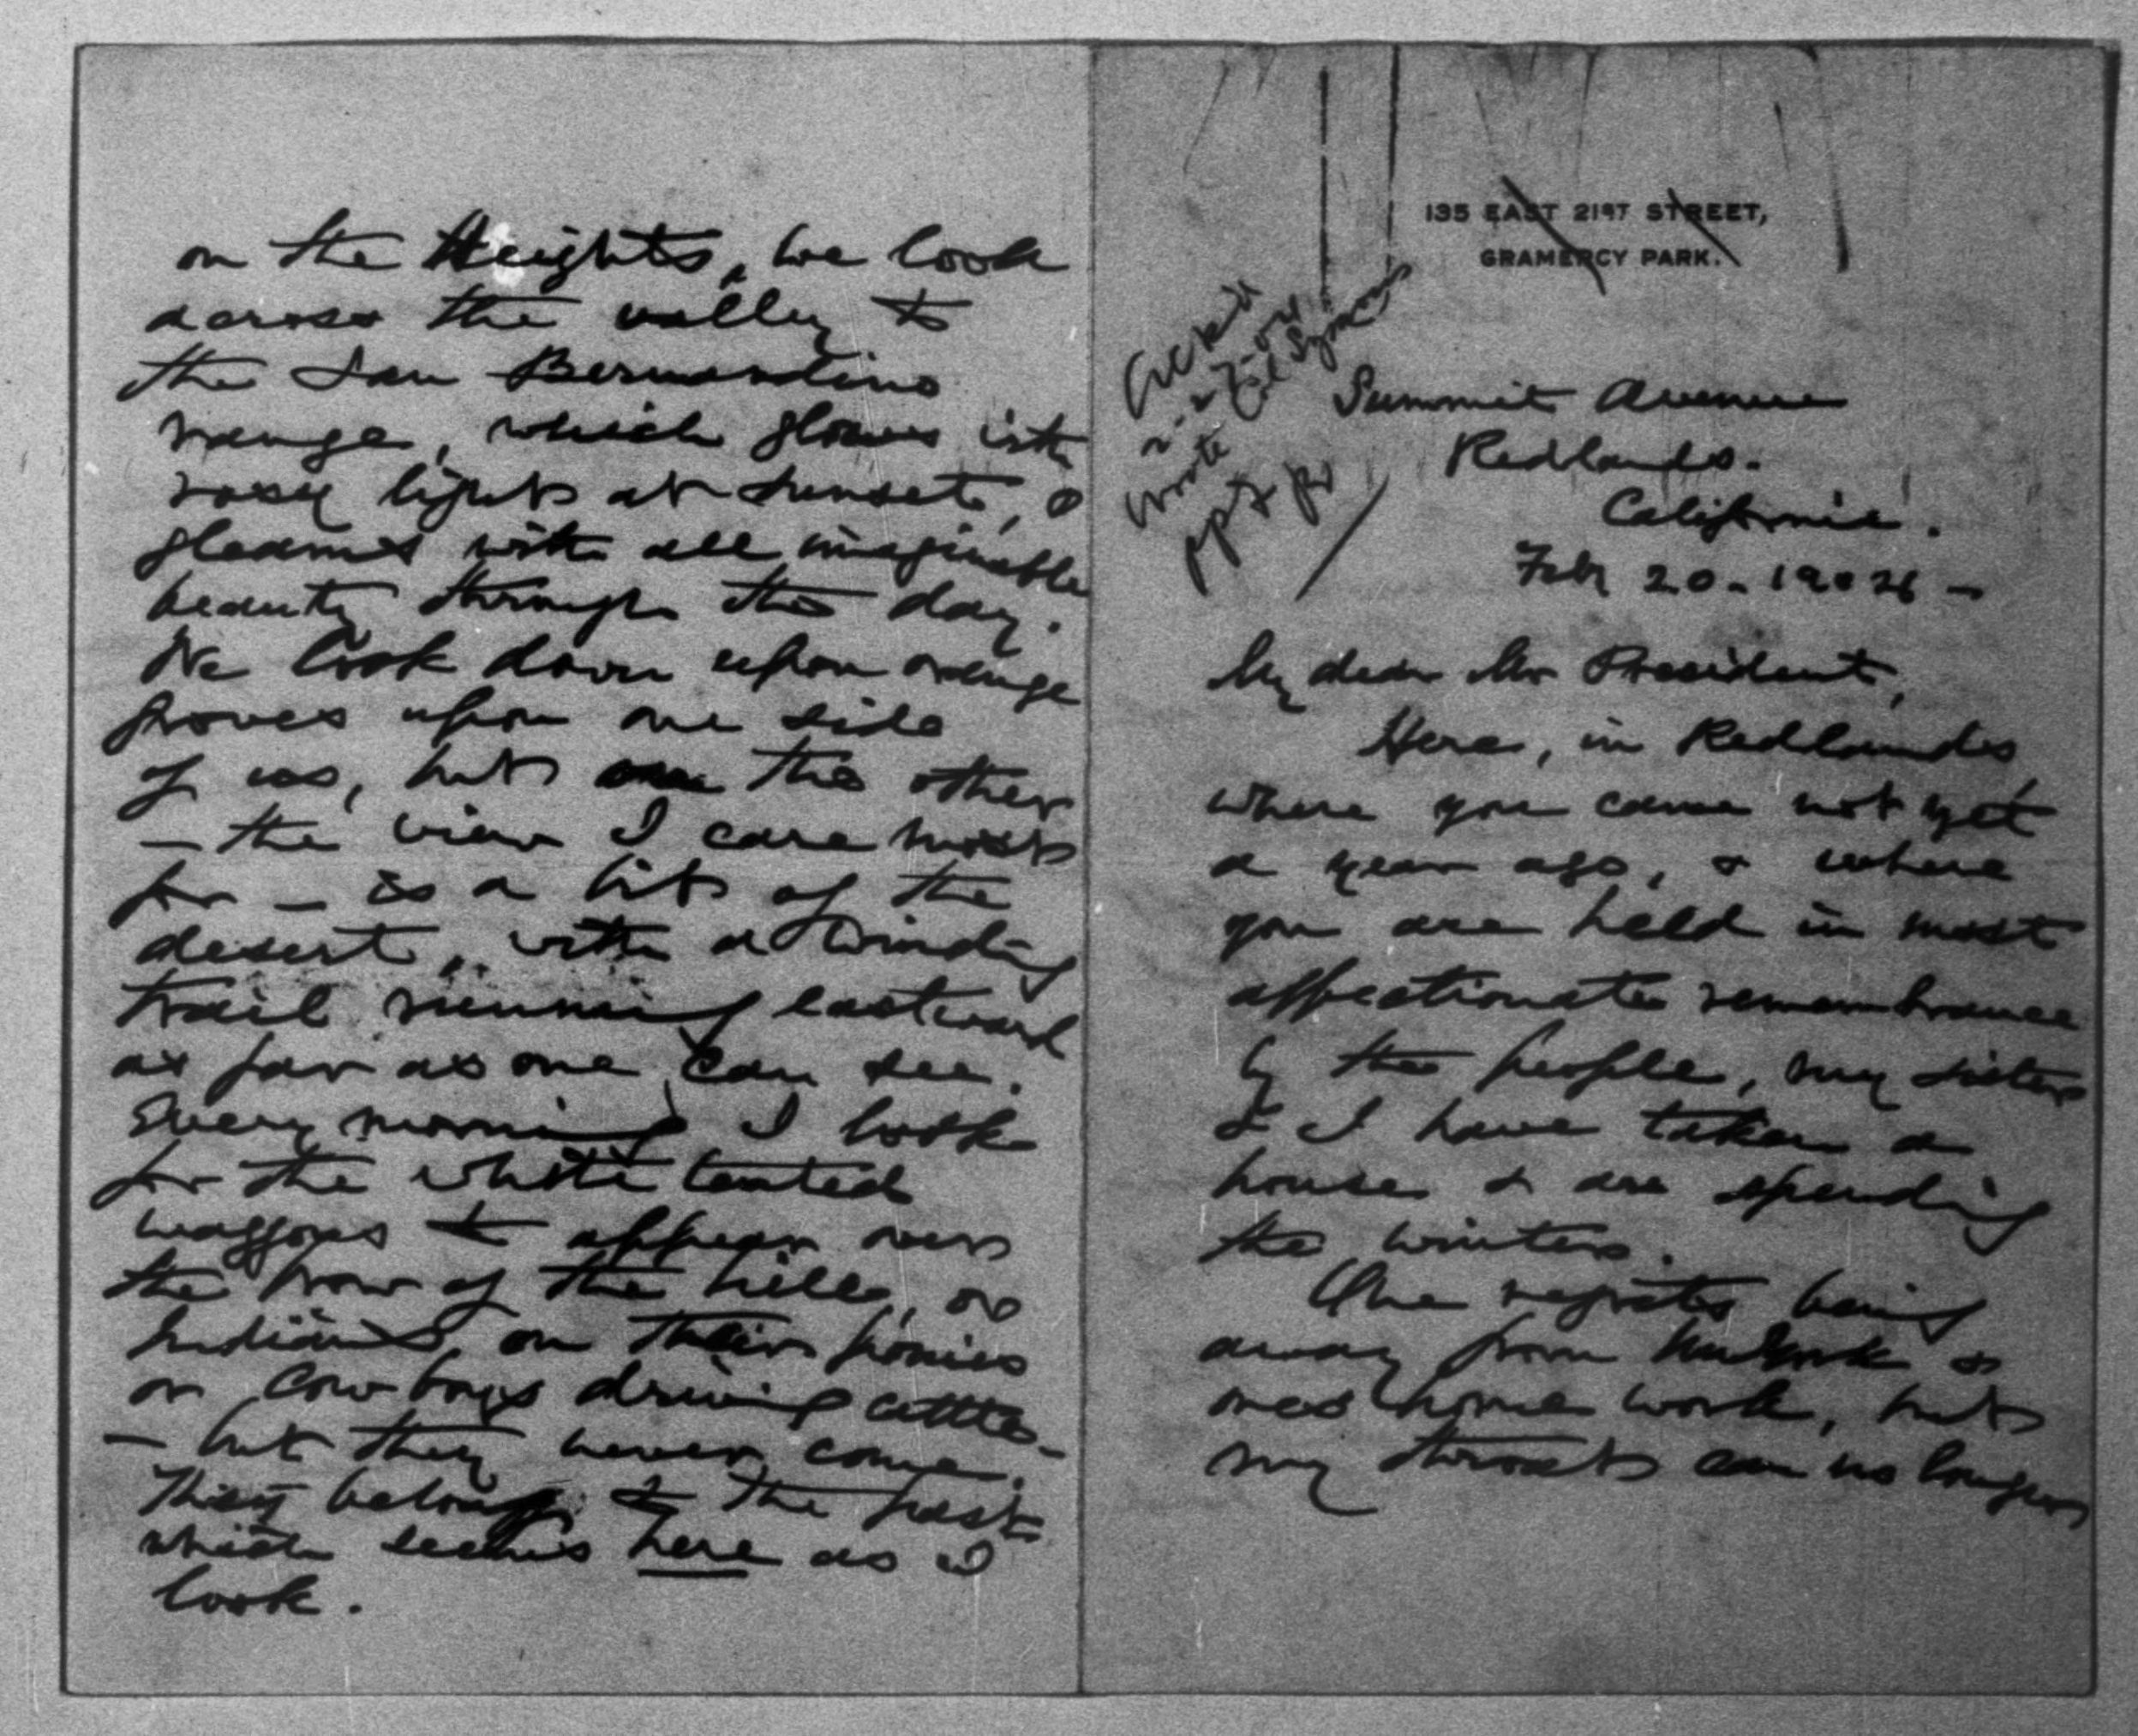 135 EAST 21ST STREET,
GRAMERCY PARK.
Ack'd
2-27-04
Wrote
PPF
Summit Avenue
Redlands.
California.
Feb 20 - 1904 -
My dear Mr President,
Here, in Redlands
where you came not yet
a year ago, & where
you are held in most
affectionate remembrance
by the people, my sister
& I have taken a
house & are spending
the winter.
One regrets being
away from New York &
ones home work, but
my throat can no longer
on the Heights, we look
across the valley to
the San Bernardino
range, which glows with
rosy lights at sunset, &
gleams with all imaginable
beauty through the day.
We look down upon orange
groves upon one side
of us, but on the other
- the view I care most
for - is a bit of the
desert, with a winding
trail running eastward
as far as one can see.
Every morning I look
for the white tented
waggons to appear over
the brow of the hill, or
Indians on their ponies
or cow boys driving cattle -
- but they never come.
They belong to the past
which seems here as I
look.